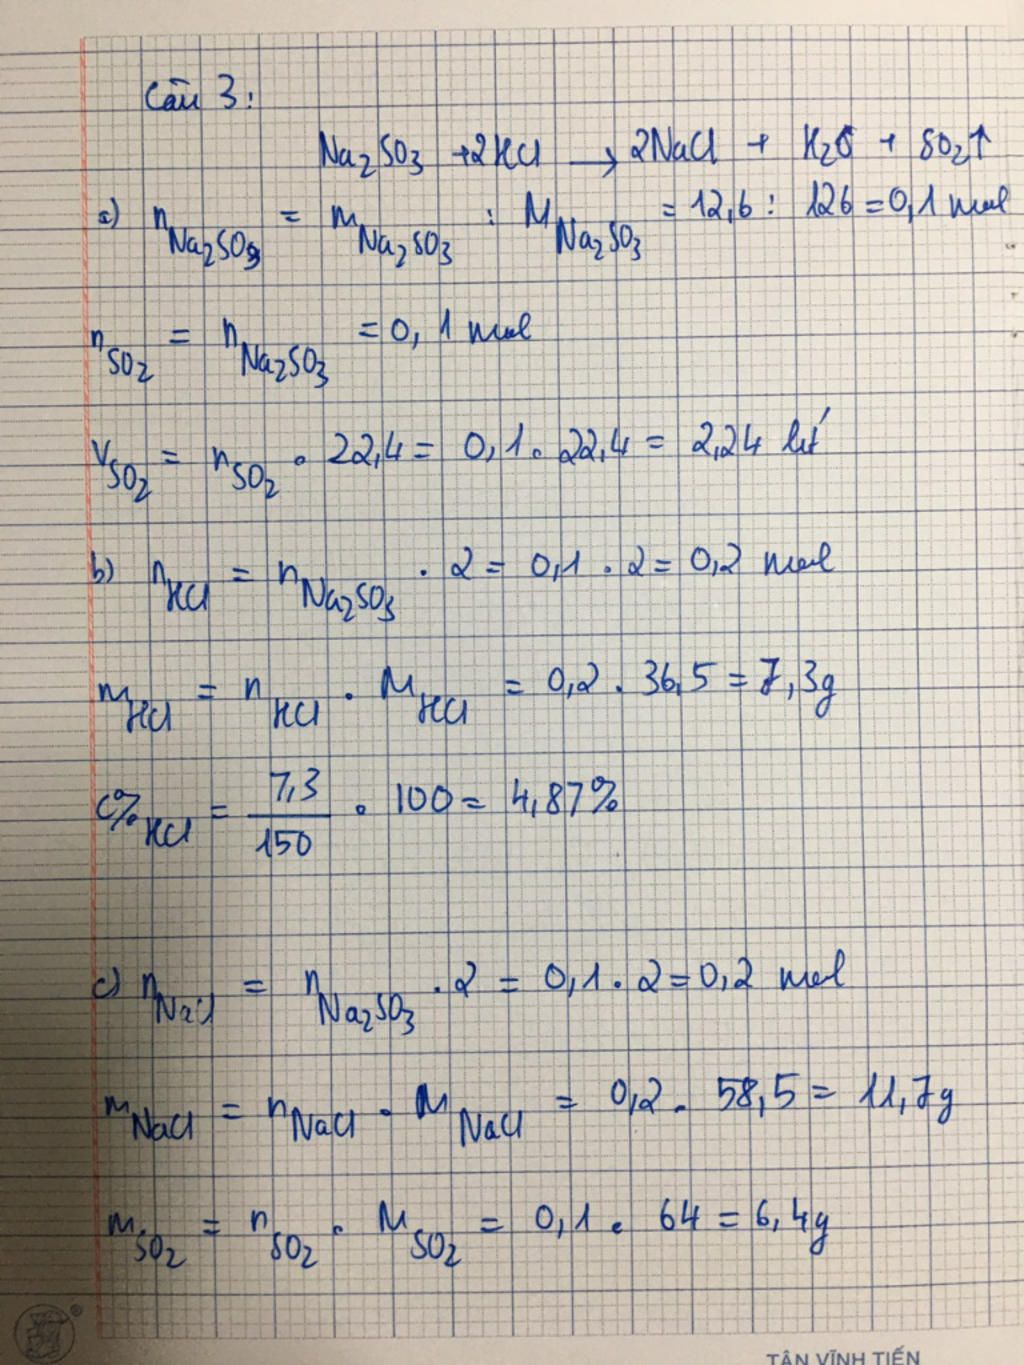 Câu 3:
Na₂SO₃ + 2HCl → 2NaCl + H₂O + SO₂↑
a) n Na₂SO₃ = m Na₂SO₃ : M Na₂SO₃ = 12,6 : 126 = 0,1 mol
n SO₂ = n Na₂SO₃ = 0,1 mol
V SO₂ = n SO₂ . 22,4 = 0,1 . 22,4 = 2,24 lít
b) n HCl = n Na₂SO₃ . 2 = 0,1 . 2 = 0,2 mol
m HCl = n HCl . M HCl = 0,2 . 36,5 = 7,3g
C% HCl = 7,3/150 . 100 = 4,87%
c) n NaCl = n Na₂SO₃ . 2 = 0,1 . 2 = 0,2 mol
m NaCl = n NaCl . M NaCl = 0,2 . 58,5 = 11,7g
m SO₂ = n SO₂ . M SO₂ = 0,1 . 64 = 6,4g
TÂN VĨNH TIẾN